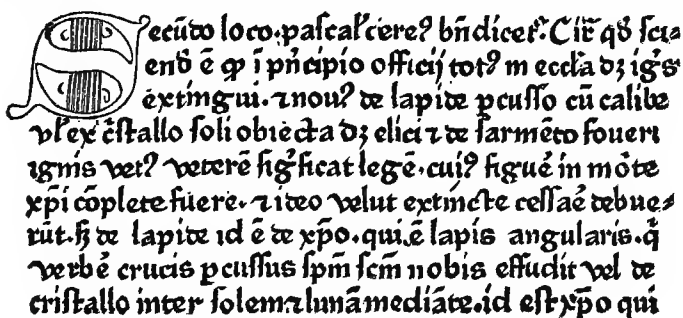 Secūdo loco. paſcal' cere⁹ bn̄dicet᷑. Cir̄ qđ ſciᷓ
endū ē ꝙ ī pn̄cipio officij tot⁹ in eccl̄a dꝫ ig̅s
extingui. ⁊ nou⁹ de lapide ꝑcuſſo cū calibe
vl' ex c̄ſtallo ſoli obiecta dꝫ elici ⁊ de ſarmēto foueri
ignis vet⁹ veterē ſig̅ficat legē. cui⁹ figuē in mōte
xp̄i cōplete fuere. ⁊ ideo velut extincte ceſſaē debue⸗
rūt. ſꝫ de lapide id ē de xp̄o. qui ē lapis angularis. q̄
verbē crucis ꝑcuſſus ſpm̄ ſcm̄ nobis effudit vel de
criſtallo inter ſolem ⁊ lunā mediāte. id eſt xp̄o qui